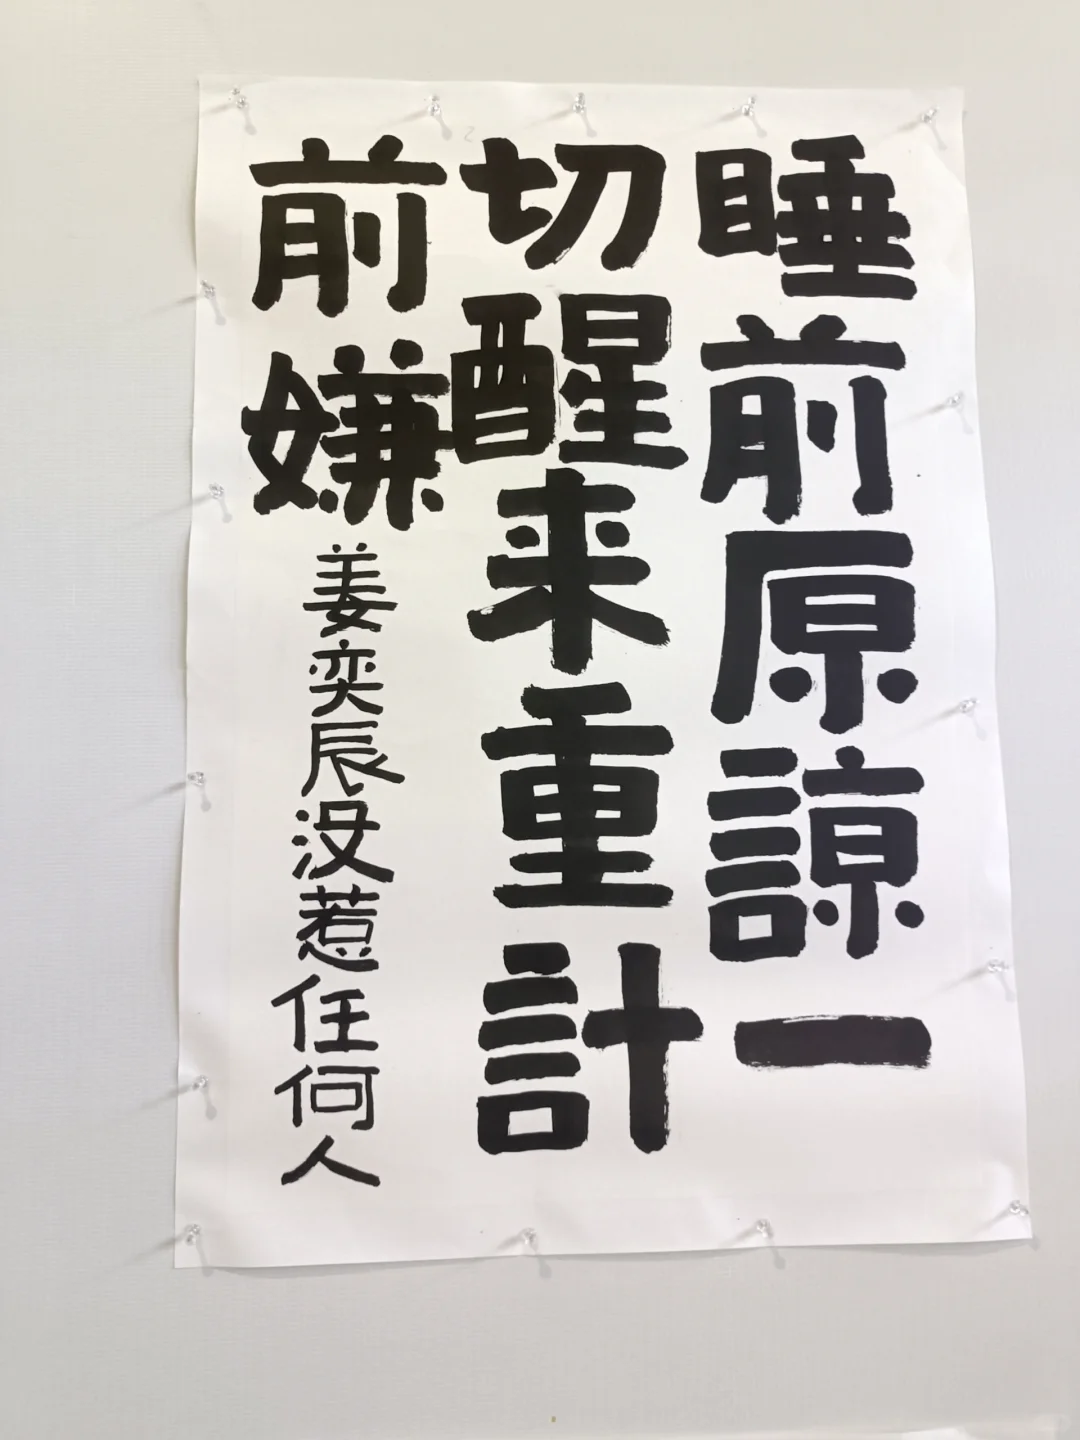 睡前原諒一
切醒来重計
前嫌
姜奕辰没惹任何人